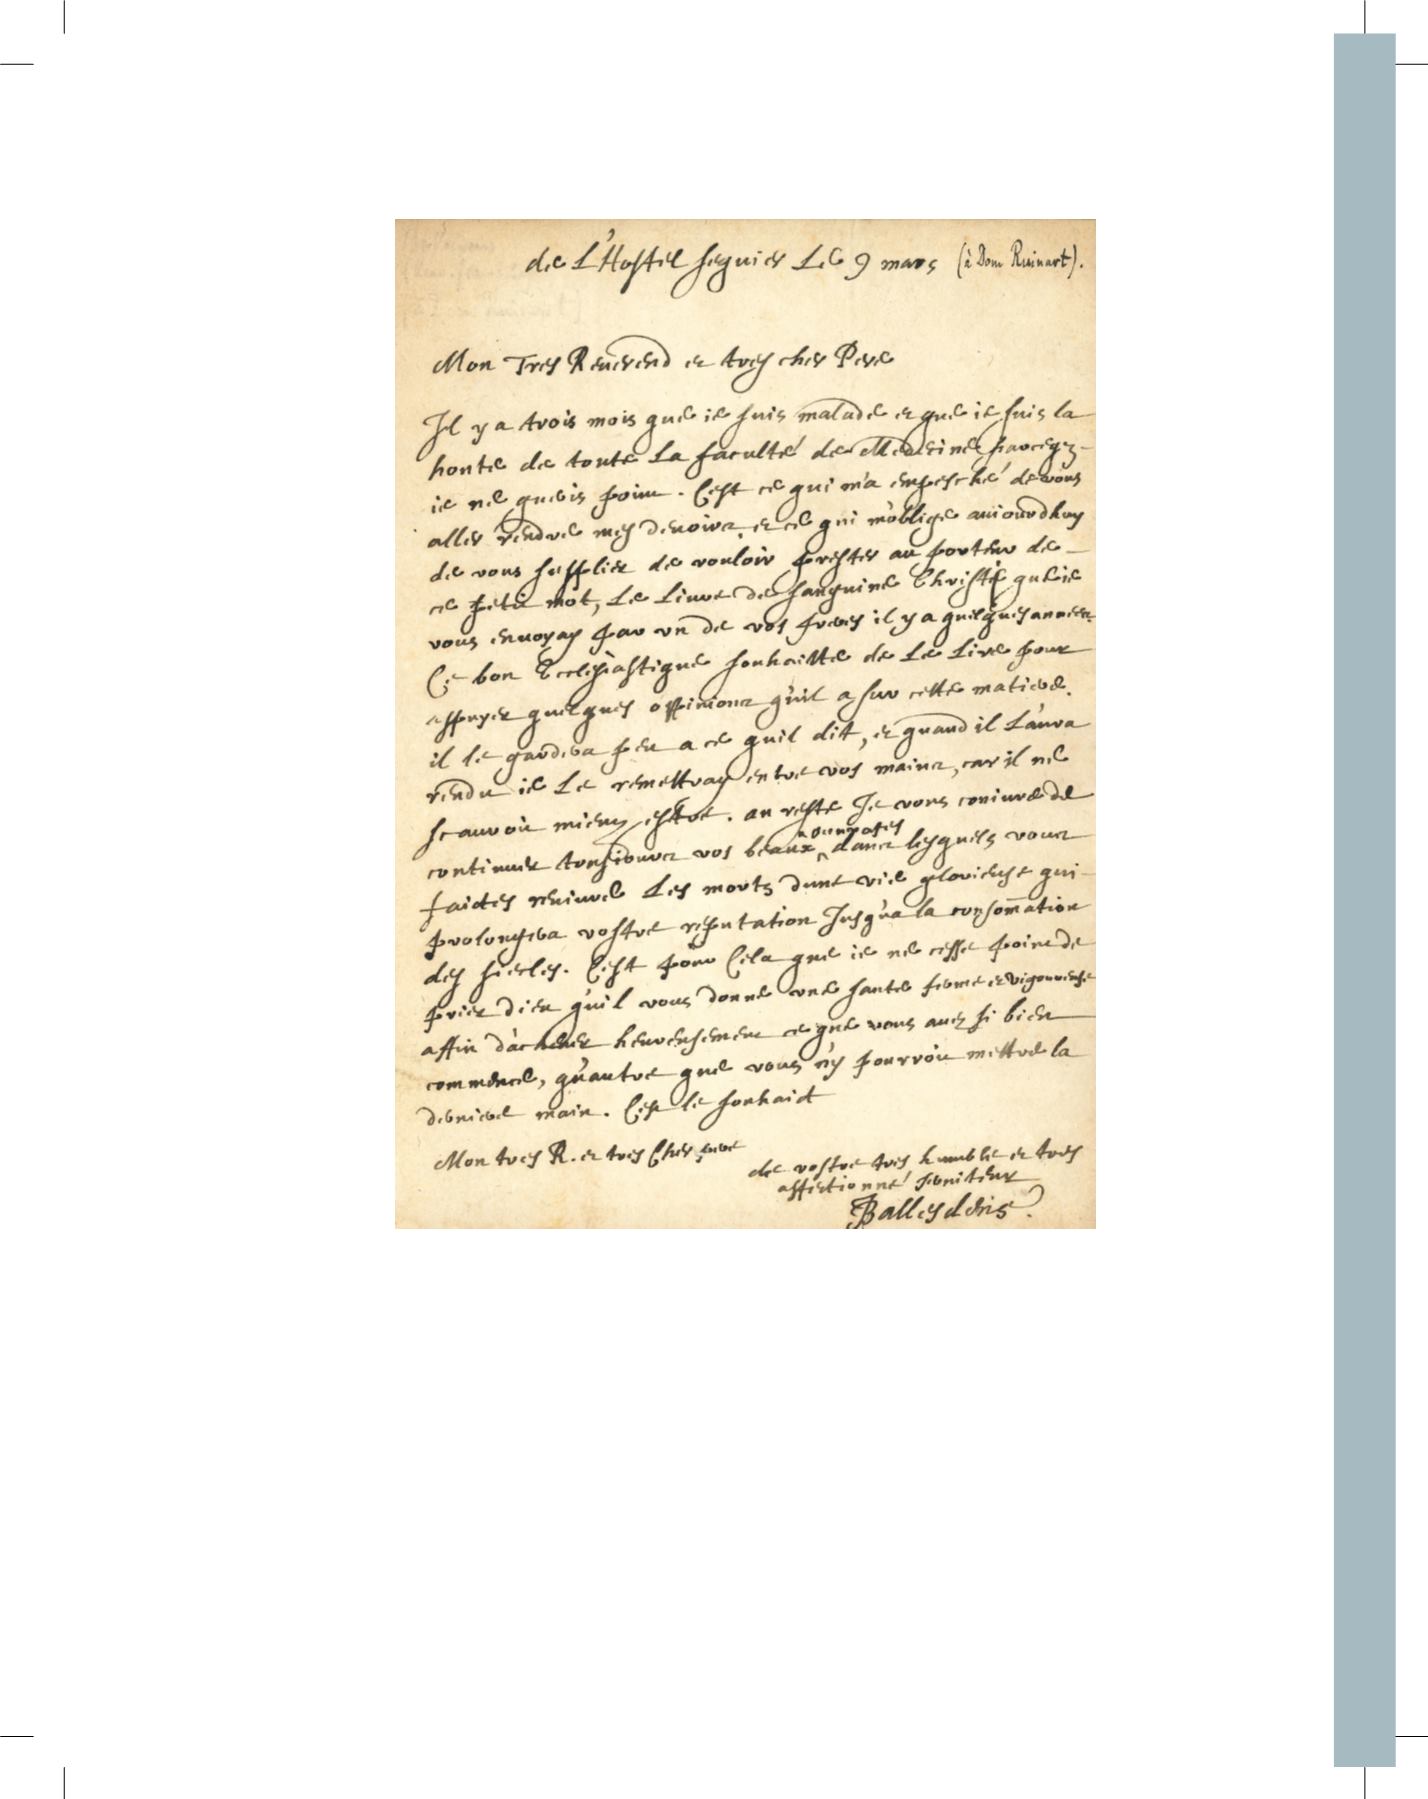 de L'Hostel seguier Le 9 mars (à Dom Ruinart).
Mon Tres Reuerend et tres cher Pere
Il y a trois mois que ie suis malade et que ie suis la
honte de toute La faculté de Medecine parceq3
ie ne gueris point. C'est ce qui m'a empesché de vous
aller rendre mes deuoirs, et ce qui m'oblige auiourdhuy
de vous supplier de vouloir prester au porteur de
ce petit mot, Le Liure de sanguine Christi que ie
vous enuoyay par vn de vos freres il y a quelques années.
Ce bon Ecclesiastique souhaitte de Le Lire pour
appuyer quelques oppinions qu'il a sur cette matiere.
il le gardera peu a ce quil dit, et quand il L'aura
rendu ie Le remettray entre vos mains, car il ne
scauroit mieux estre. au reste Je vous coniure de
continuer tousiours vos beaux ouurages dans lesquels vous
faictes reuiure Les morts dune vie glorieuse qui
prolongera vostre reputation Jusqu'a la consommation
des siecles. C'est pour Cela que ie ne cesse point de
prier dieu qu'il vous donne vne santé ferme et vigoureuse
affin d'acheuer heureusement ce que vous auez si bien
commencé, qu'autre que vous n'y pourroit mettre la
derniere main. C'est le souhait
Mon tres R. et tres Cher pere
de vostre tres humble et tres
affectionné seruiteur
Ballesdens